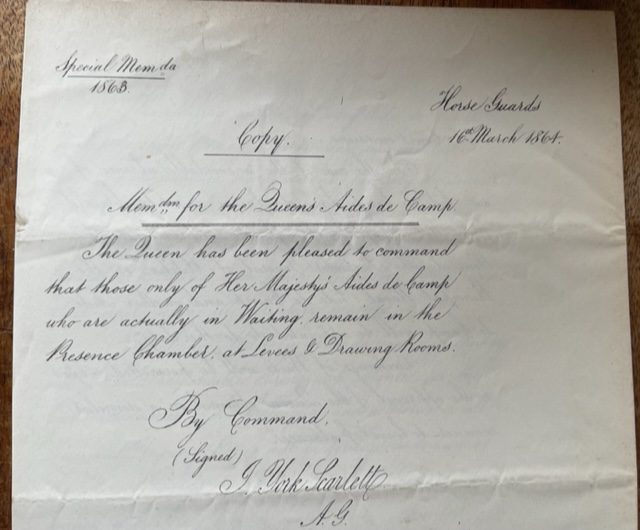 Special Memda
1863.
Horse Guards
16th March 1864.
Copy.
Memdm for the Queen's Aides de Camp.
The Queen has been pleased to command
that those only of Her Majesty's Aides de Camp
who are actually in Waiting, remain in the
Presence Chamber, at Levees & Drawing Rooms.
By Command,
(Signed)
J. York Scarlett
A.G.